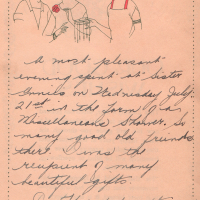 A most pleasant
evening spent at Sister
on Wednesday July
21st in the form of a
Miscellaneous Shower. So
many good old friends
there. I was the
recipient of many
beautiful gifts.